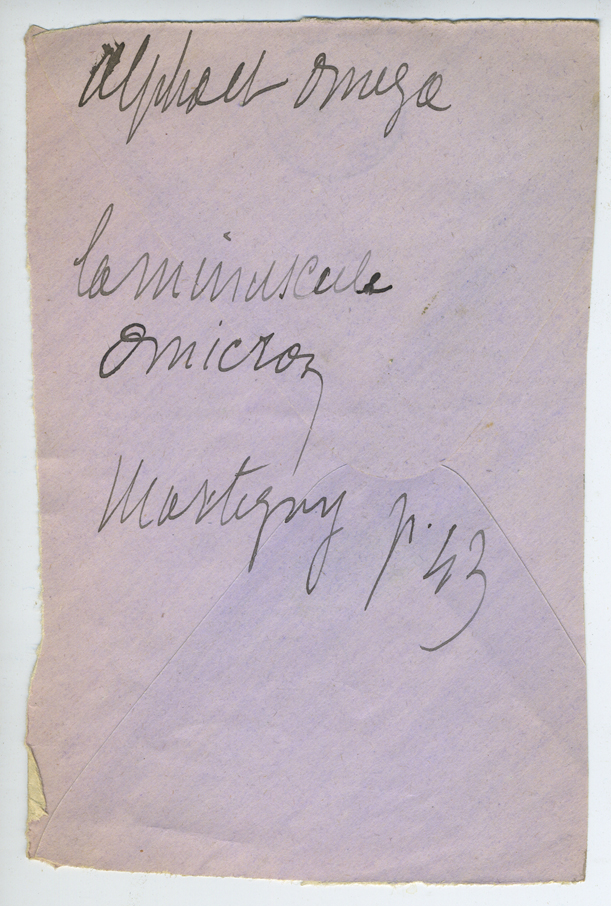 alpha et omega
la minuscule
omicron
Martigny p. 43